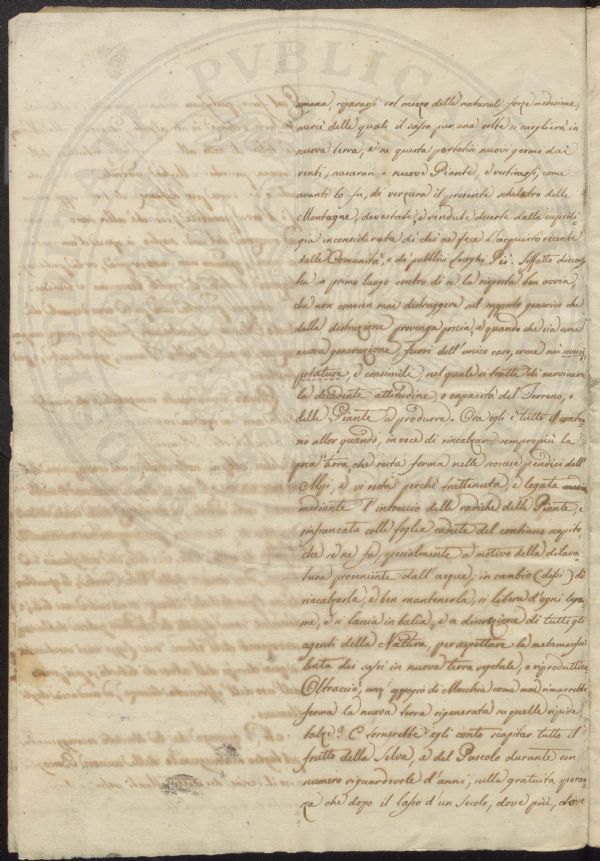 amana, ripararsi col mezzo delle naturali forze medesime,
mercè delle quali il sasso pur una volta si scioglierà in
nuova terra, e ne questa portativi nuovi germi dai
venti, nasceran nuove Piante, e vestirassi, come
avanti lo fu, di verzura il presente scheletro delle
Montagne, devastate, e vendute deserte dalla cupidi
già inconsiderata di chi ne fece l'acquisto recente
dalle Comunità, e da' pubblici Luoghi Pii. Siffatto discorso
ha in primo luogo contro di sè la risposta ben ovvia,
che non convien mai distruggere sul supposto generico che
dalla distruzione provenga poscia, e quando che sia una
nuova generazione, fuori dell'unico caso, come nei
potature, e consimili, nel quale si tratti di ravvivare
la decadente attitudine, o capacità del Terreno, o
delle Piante a produrre. Ora egli è tutto il contra
rio allor quando, in vece di rincalzar sempre più la
poca terra, che resta ferma nelle scoscese pendici dell'
Alpi, e vi resta perchè trattenuta, e legata
mediante l'intreccio delle radiche delle Piante, e
rinfrancata colle foglie cadute del continuo
che se ne fa, specialmente a motivo della dilava
tura proveniente dall'acque; in cambio (dissi) di
rincalzarla, e ben mantenerla, si libera d'ogni lega
me, e si lascia in balia, e a discrezione di tutti gli
agenti della Natura, per aspettare la metamorfosi
lenta dei sassi in nuova terra vegetale, e riproduttiva.
Oltracciò, senz'appoggio di Macchia come mai rimarrebbe
ferma la nuova terra rigenerata in quelle ripide
balze? E tornerebbe egli conto scapitar tutto il
frutto della Selva, e del Pascolo durante un
numero riguardevole d'anni, sulla gratuita speran
za che dopo il lasso d'un Secolo, dove più, dove